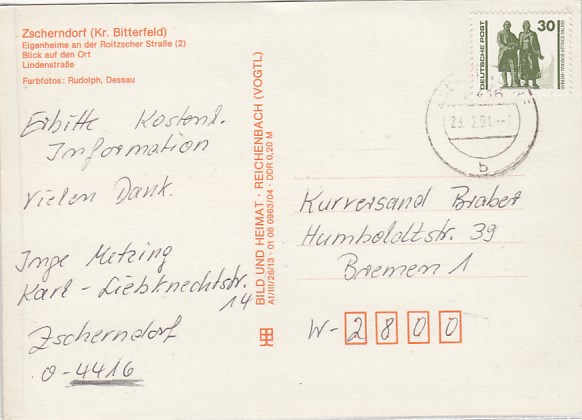 Zscherndorf (Kr. Bitterfeld)
Eigenheime an der Roitzscher Straße (2)
Blick auf den Ort
Lindenstraße
Farbfotos: Rudolph, Dessau
Erbitte Kostenl.
Information
Vielen Dank.
Inge Metzing
Karl-Liebknechtstr.
14
Zscherndorf
O-4416
BILD UND HEIMAT · REICHENBACH (VOGTL)
A1/III/26/13 · 01 08 0963/04 · DDR 0,20 M
DEUTSCHE POST
30
23.2.91
b
Kurversand Braber
Humboldtstr. 39
Bremen 1
W-2800